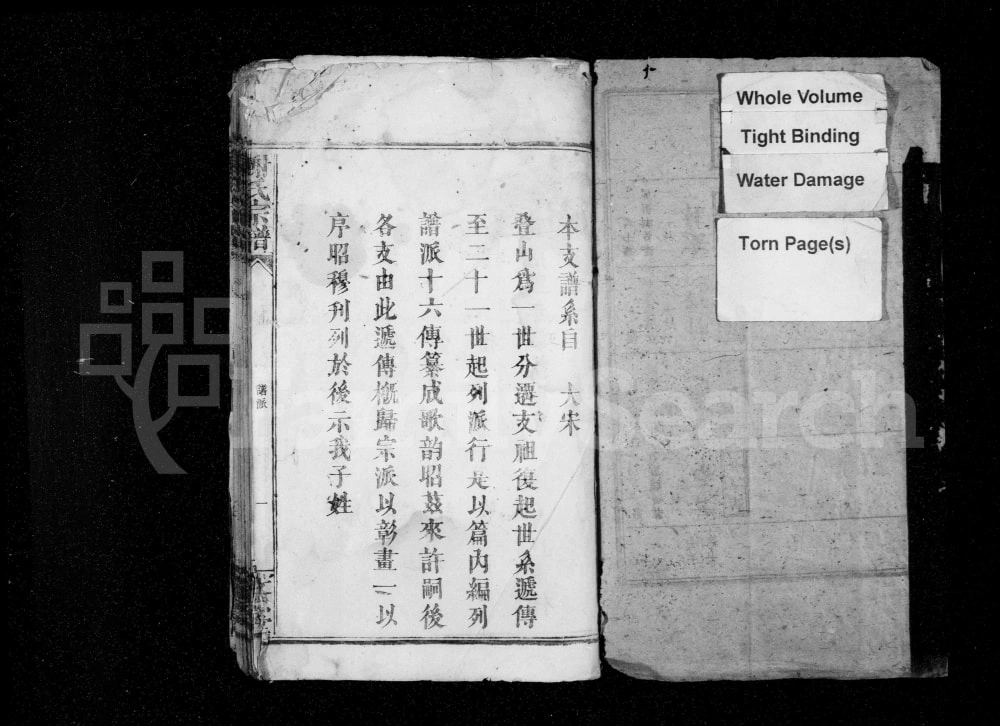 Whole Volume
Tight Binding
Water Damage
Torn Page(s)
本支譜系自　大宋
叠山為一世分遷支祖復起世系遞傳
至二十一世起列派行是以篇內編列
譜派十六傳纂成歌韵昭茲來許嗣後
各支由此遞傳概歸宗派以彰畫一以
序昭穆刋列於後示我子姓
謝氏宗譜
譜派
一
Search